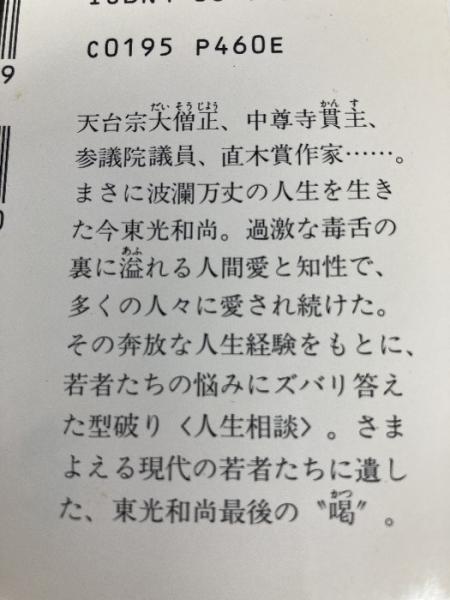 C0195 P460E
天台宗大僧正、中尊寺貫主、
参議院議員、直木賞作家……。
まさに波瀾万丈の人生を生き
た今東光和尚。過激な毒舌の
裏に溢れる人間愛と知性で、
多くの人々に愛され続けた。
その奔放な人生経験をもとに、
若者たちの悩みにズバリ答え
た型破り〈人生相談〉。さま
よえる現代の若者たちに遺し
た、東光和尚最後の〝喝〟。